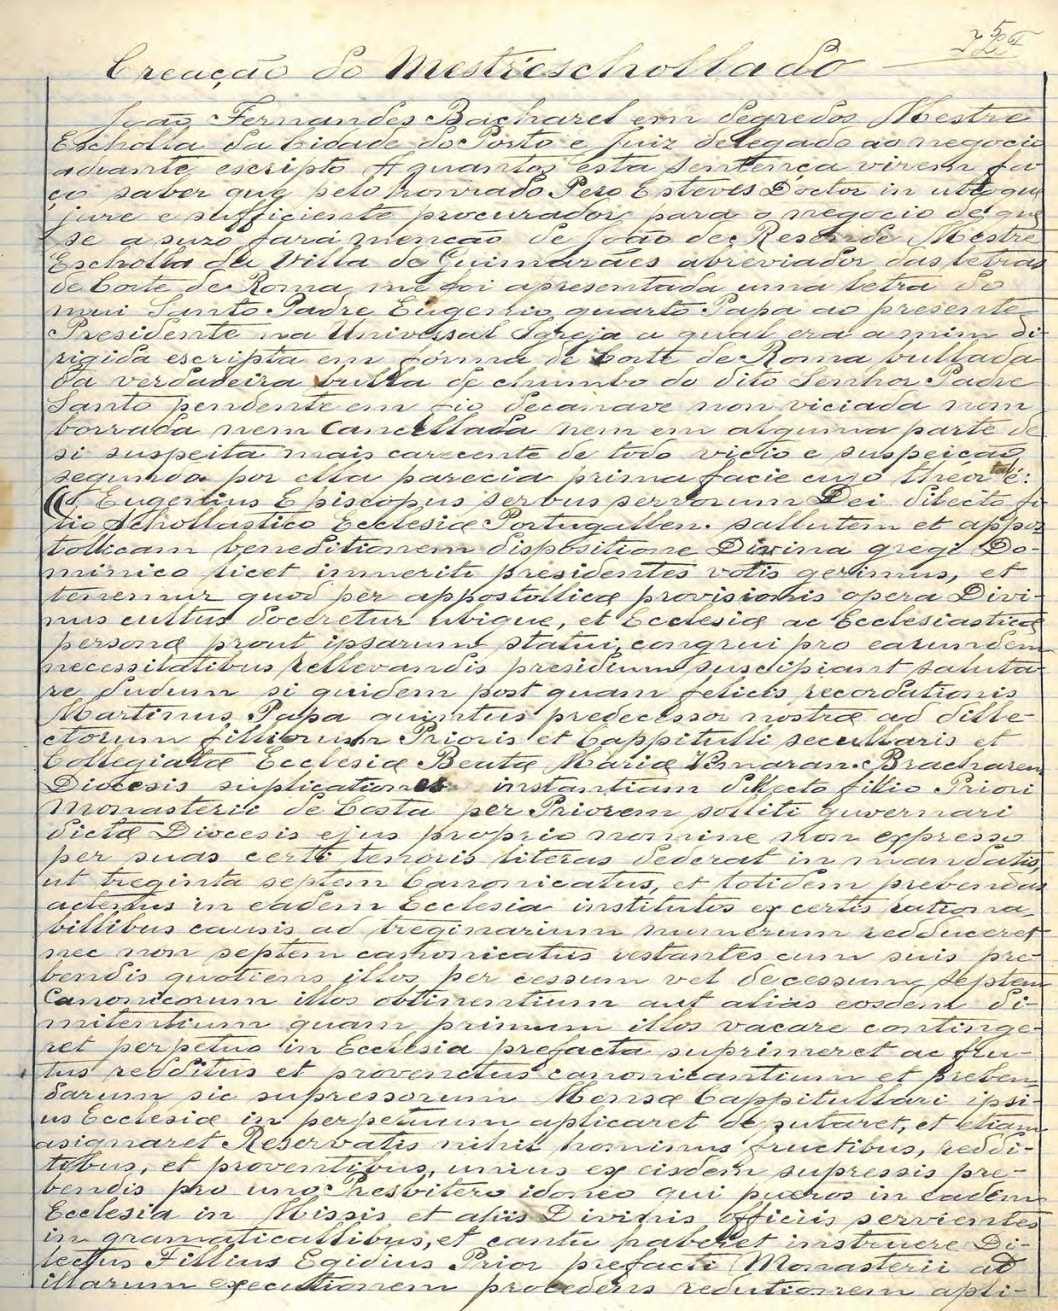 Creação do Mestreschollado
João Fernandes Bacharel em degredos Mestre
Escholla da Cidade do Porto e Juiz delegado ao negocio
adiante escripto A quantos esta sentença virem fa-
ço saber que pelo honrado Pero Esteves Doctor in utroque
jure e sufficiente procurador para o negocio de que
se a suzo fará menção de João de Resende Mestre
Escholla da Villa de Guimarães abreviador das letras
de Corte de Roma me foi apresentada uma letra do
mui Santo Padre Eugenio quarto Papa ao presente
Presidente na Universal Igreja a qual era a mim di-
rigida escripta em fórma de Corte de Roma bullada
da verdadeira bulla de chumbo do dito Senhor Padre
Santo pendente em fio decanave non viciada nem
borrada nem Cancellada nem em alguma parte de
si suspeita mais carecente de todo vicio e suspeição
segundo por ella parecia prima facie cujo theor tal é:
Eugenius Episcopus servus servorum Dei dilecto fi-
lio Schollastico Ecclesiæ Portugallen. sallutem et appos-
tollicam beneditionem dispositione Divina gregi Do-
minico licet immeriti presidentes votis gerimus, et
tenemur quod per appostollicæ provisionis opera Divi-
nus cultus docretur ubique, et Ecclesiæ ac Ecclesiasticæ
personæ prout ipsarum statui congrui pro earundem
necessitatibus rellevandis presidium suscipiant saluta-
re dudum si quidem post quam felicis recordationis
Martinus Papa quintus predecessor nostræ ad dille-
ctorum filliorum Prioris et Cappitulli secullaris et
Collegiatæ Ecclesiæ Beatæ Mariæ Vimaran. Bracharen
Diocesis suplicationes instantiam dillecto fillio Priori
Monasterii de Costa per Priorem solliti guvernari
dictæ Diocesis ejus proprio nomine non expresso
per suas certi tenoris literas dederat in mandatis,
ut treginta septem Canonicatus, et totidem prebendas
actenus in eadem Ecclesia institutos ex certis rationa-
billibus causis ad treginarium numerum redduceret
nec non septem canonicatus restantes cum suis pre-
bendis quotiens illos per cessum vel decessum septem
Canonicorum illos obtinentium aut alias eosdem di-
mitentium quam primum illos vacare continge-
ret perpetuo in Ecclesia prefacta suprimeret ac fru-
tus redditus et proventus canonicantium et preben-
darum sic supressorum Mensæ Cappitullari ipsi-
us Ecclesiæ in perpetuum aplicaret de putaret, et etiam
asignaret Reservatis nihil hominus fructibus, reddi-
tibus, et proventibus, unius ex eisdem supressis pre-
bendis pro uno Presbitero idoneo qui pueros in eadem
Ecclesia in Missis et aliis Divinis officiis servientes
in gramaticallibus, et cantu haberet instruere Di-
lectus Fillius Egidius Prior prefacti Monasterii ad
illarum executionem procedens redutionem apli-